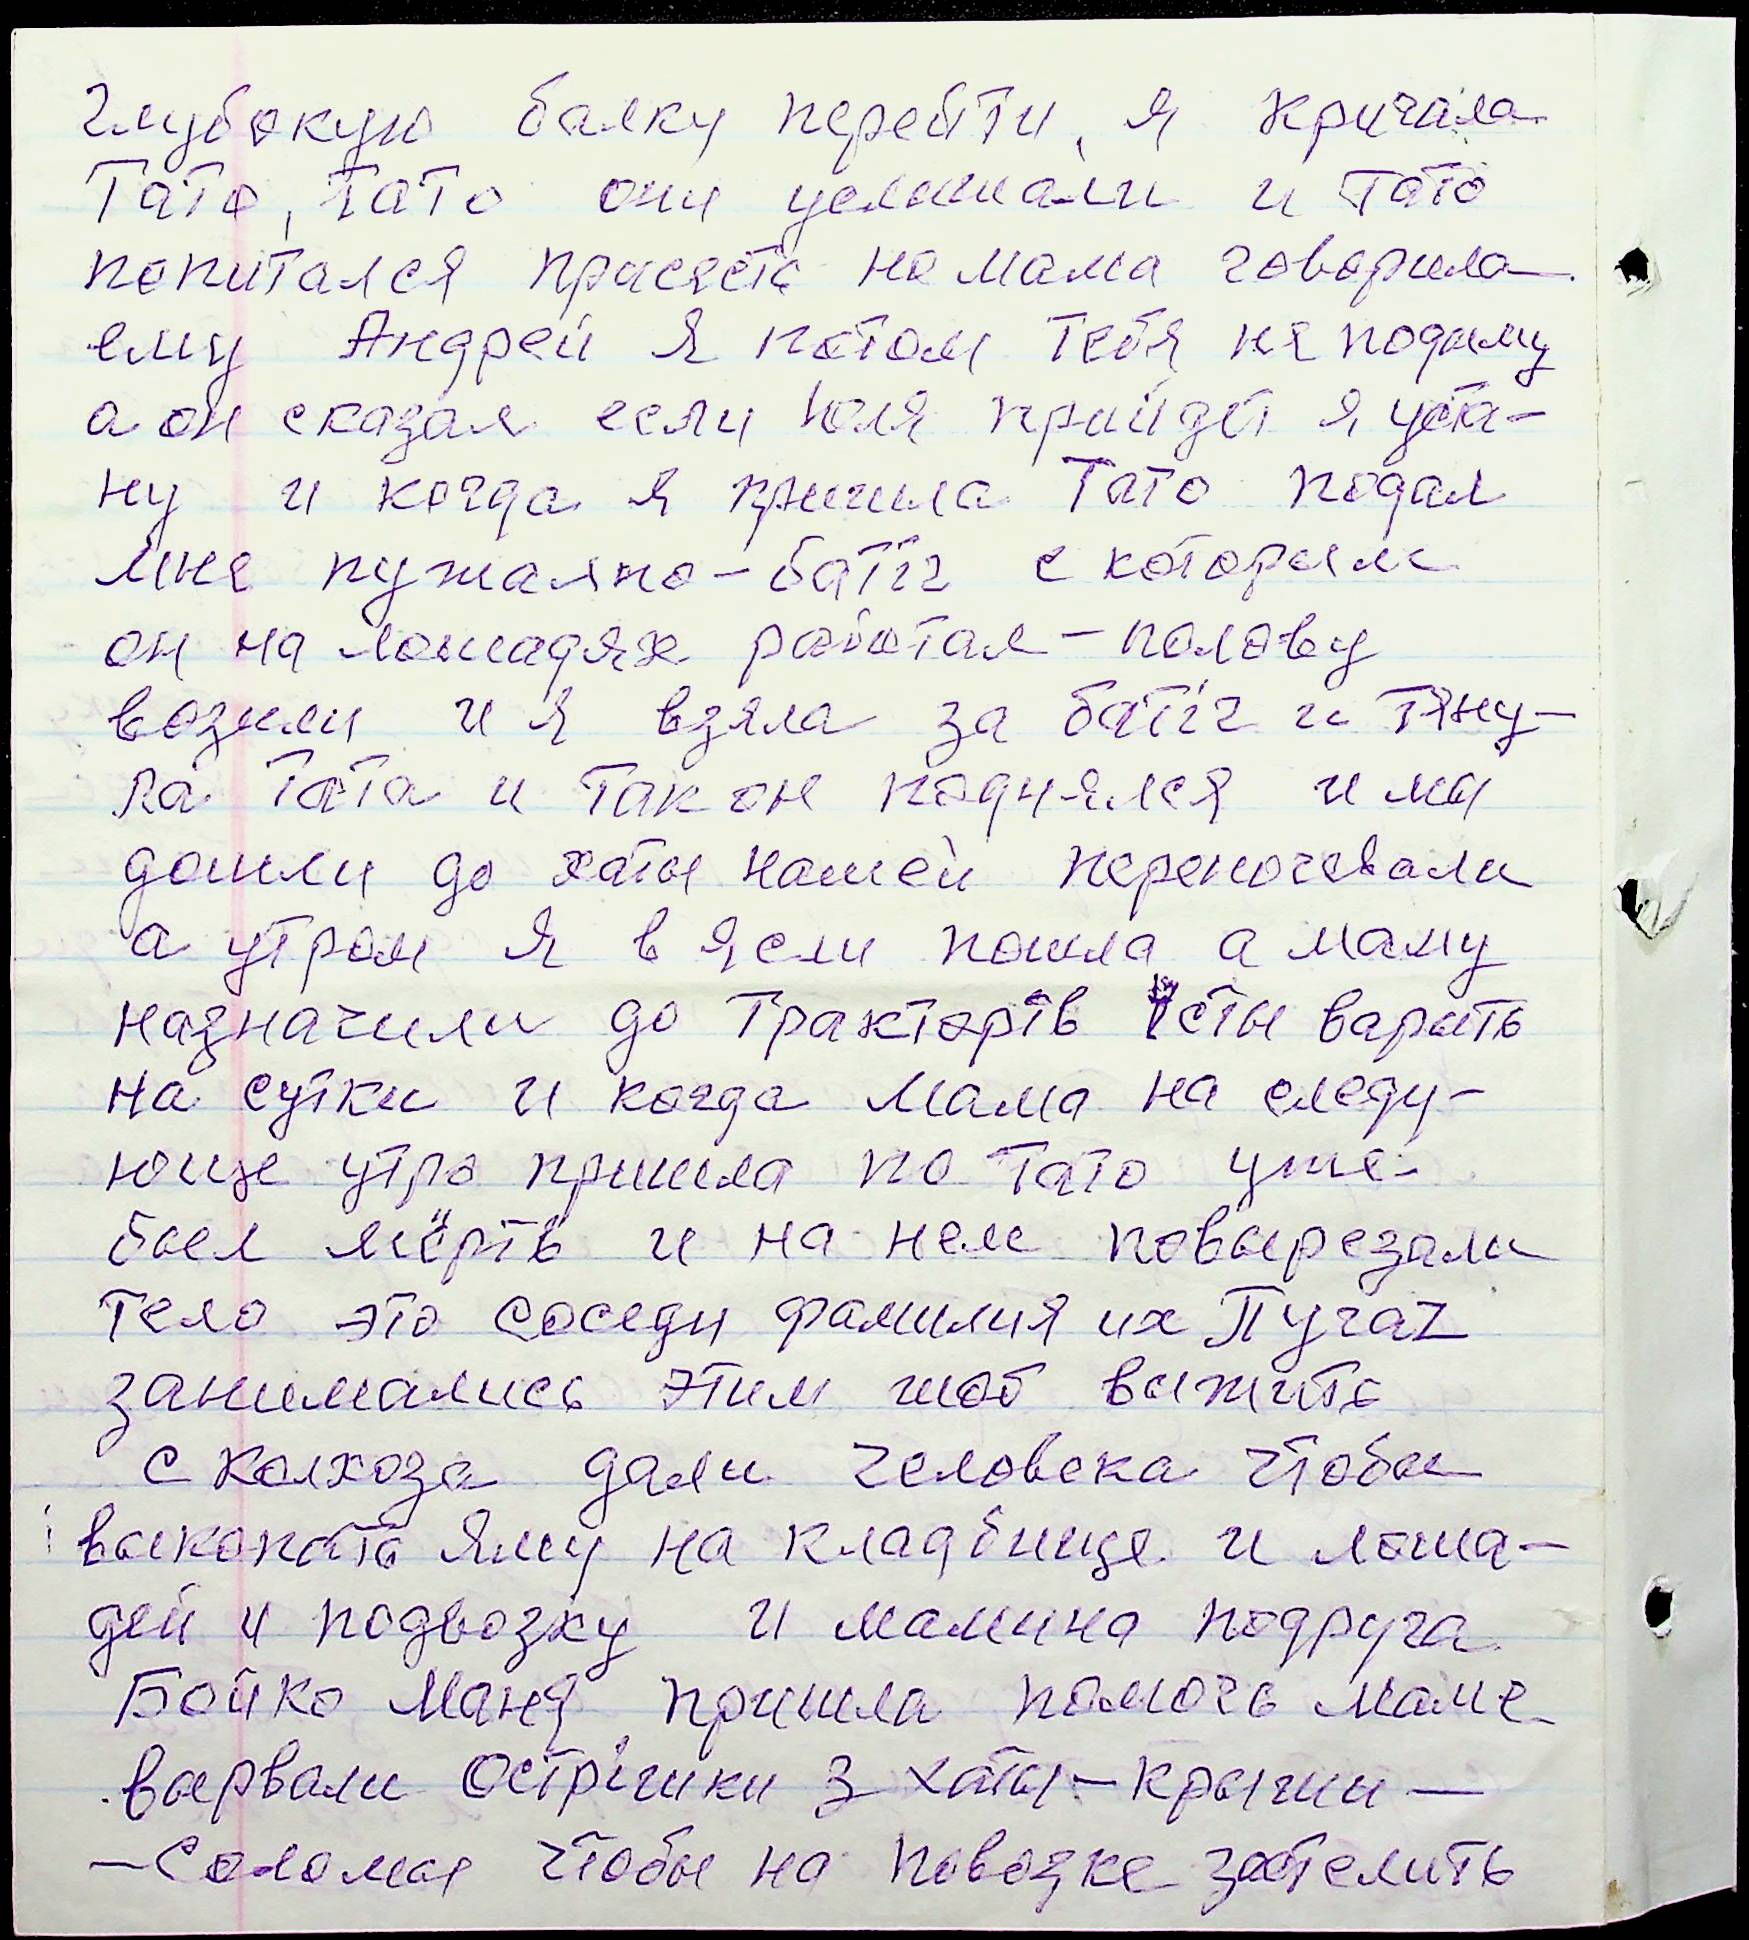 глубокую балку перейти, я кричала
Тато, тато они услышали и тато
попитался присясть но мама говорила
ему Андрей я потом тебя не подыму
а он сказал если Юля прийдёт я уста-
ну и когда я пришла Тато подал
мне пужално-батіг с которым
он на лошадях работал-полову
возили и я взяла за батіг и тяну-
ла Тата и так он поднялся и мы
дошли до хаты нашей переночевали
а утром я в ясли пошла а маму
назначили до тракторів їсты варыть
на сутки и когда мама на следу-
юще утро пришла то Тато уже
был мёртв и на нем повырезали
тело это соседи фамилия их Пугач
занимались этим шоб выжить
с колхоза дали человека чтобы
выкопать яму на кладбище и лоша-
дей и подвозку и мамина подруга
Бойко Маня пришла помочь маме
вырвали острішки з хаты-крыши-
-Соломы чтобы на повозке застелить